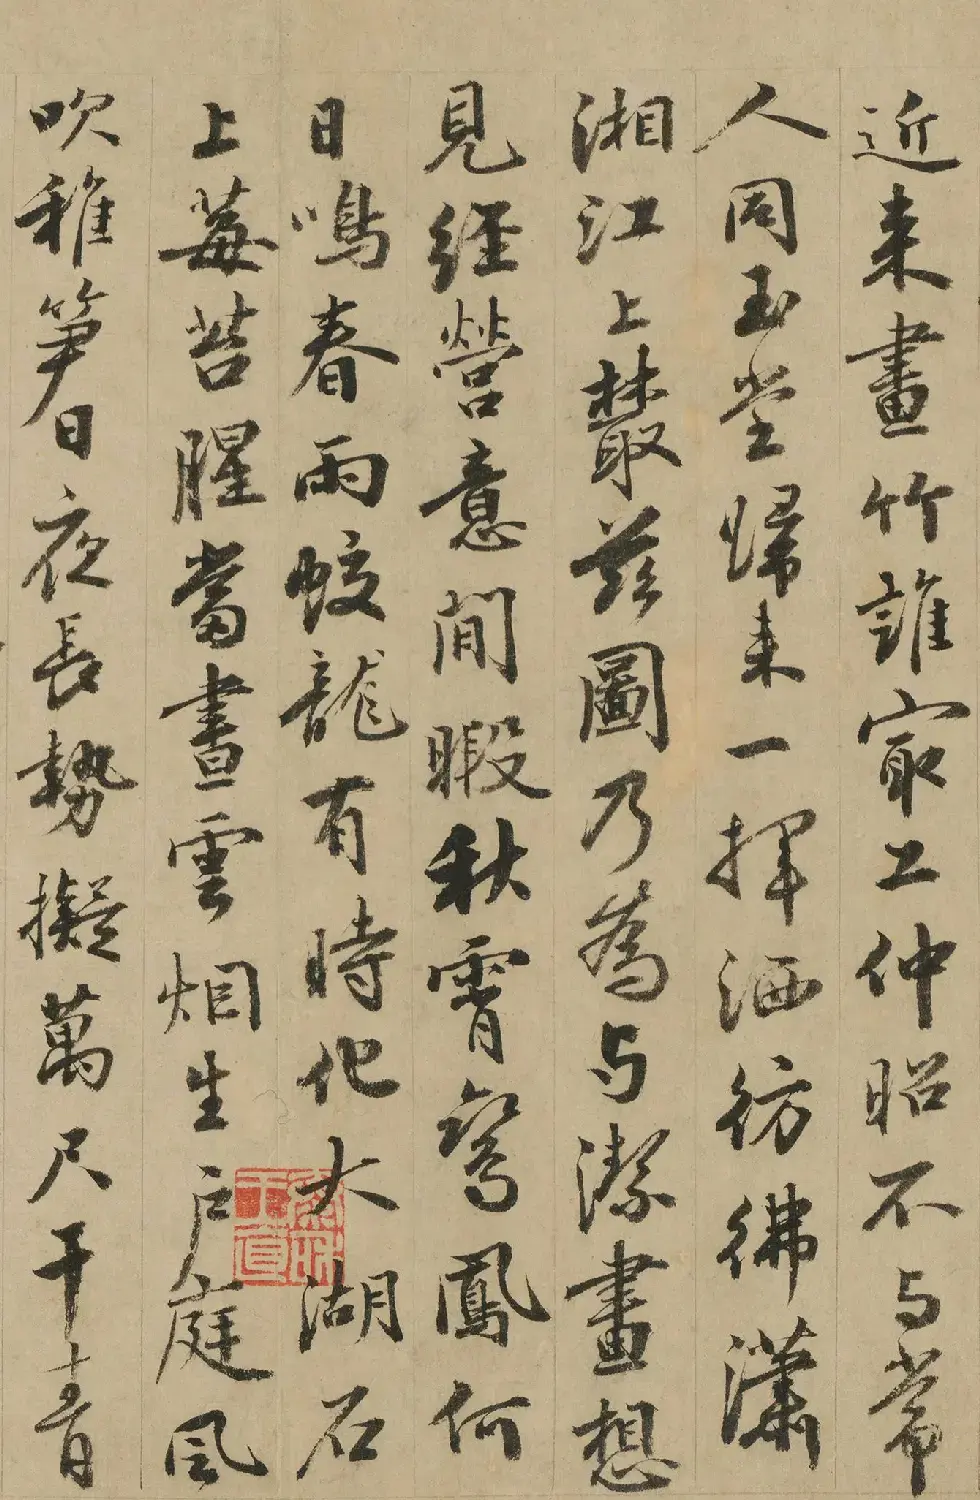 近来畫竹誰家工仲昭不与常
人同玉堂歸来一揮洒彷彿瀟
湘江上叢茲圖乃為与潔畫想
見經營意閒暇秋霄鸞鳳何
日鳴春雨蛟龍有時化太湖石
上莓苔腥當晝雲烟生戶庭風
吹稚筍日夜長勢擬萬尺干青